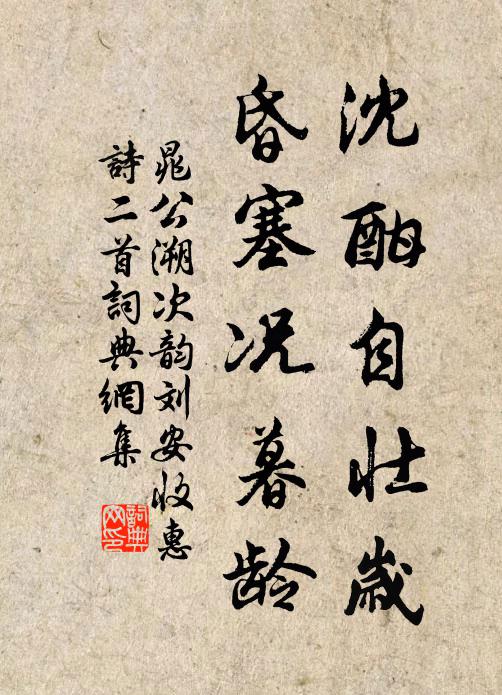 沈酣自壮岁
昏塞况暮龄
晁公溯次韵刘安收惠
詩二首詞典網集
詞典网印